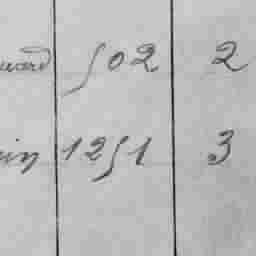 ward 502 2
in 1251 3